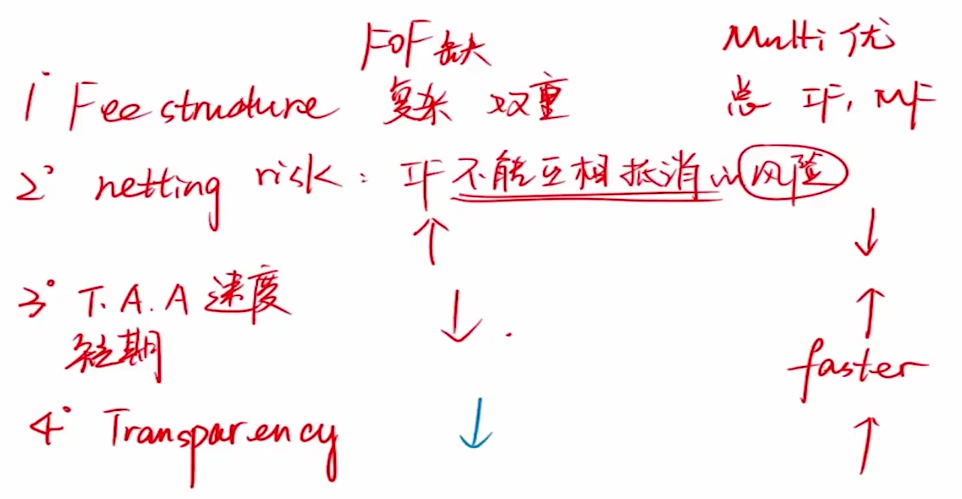 FOF 缺 Multi 优
1° Fee structure 复杂 双重 总 IF, MF
2° netting risk: IF 不能互相抵消的风险
↑ ↓
3° T.A.A 速度 ↓ ↑
短期 faster
4° Transparency ↓ ↑